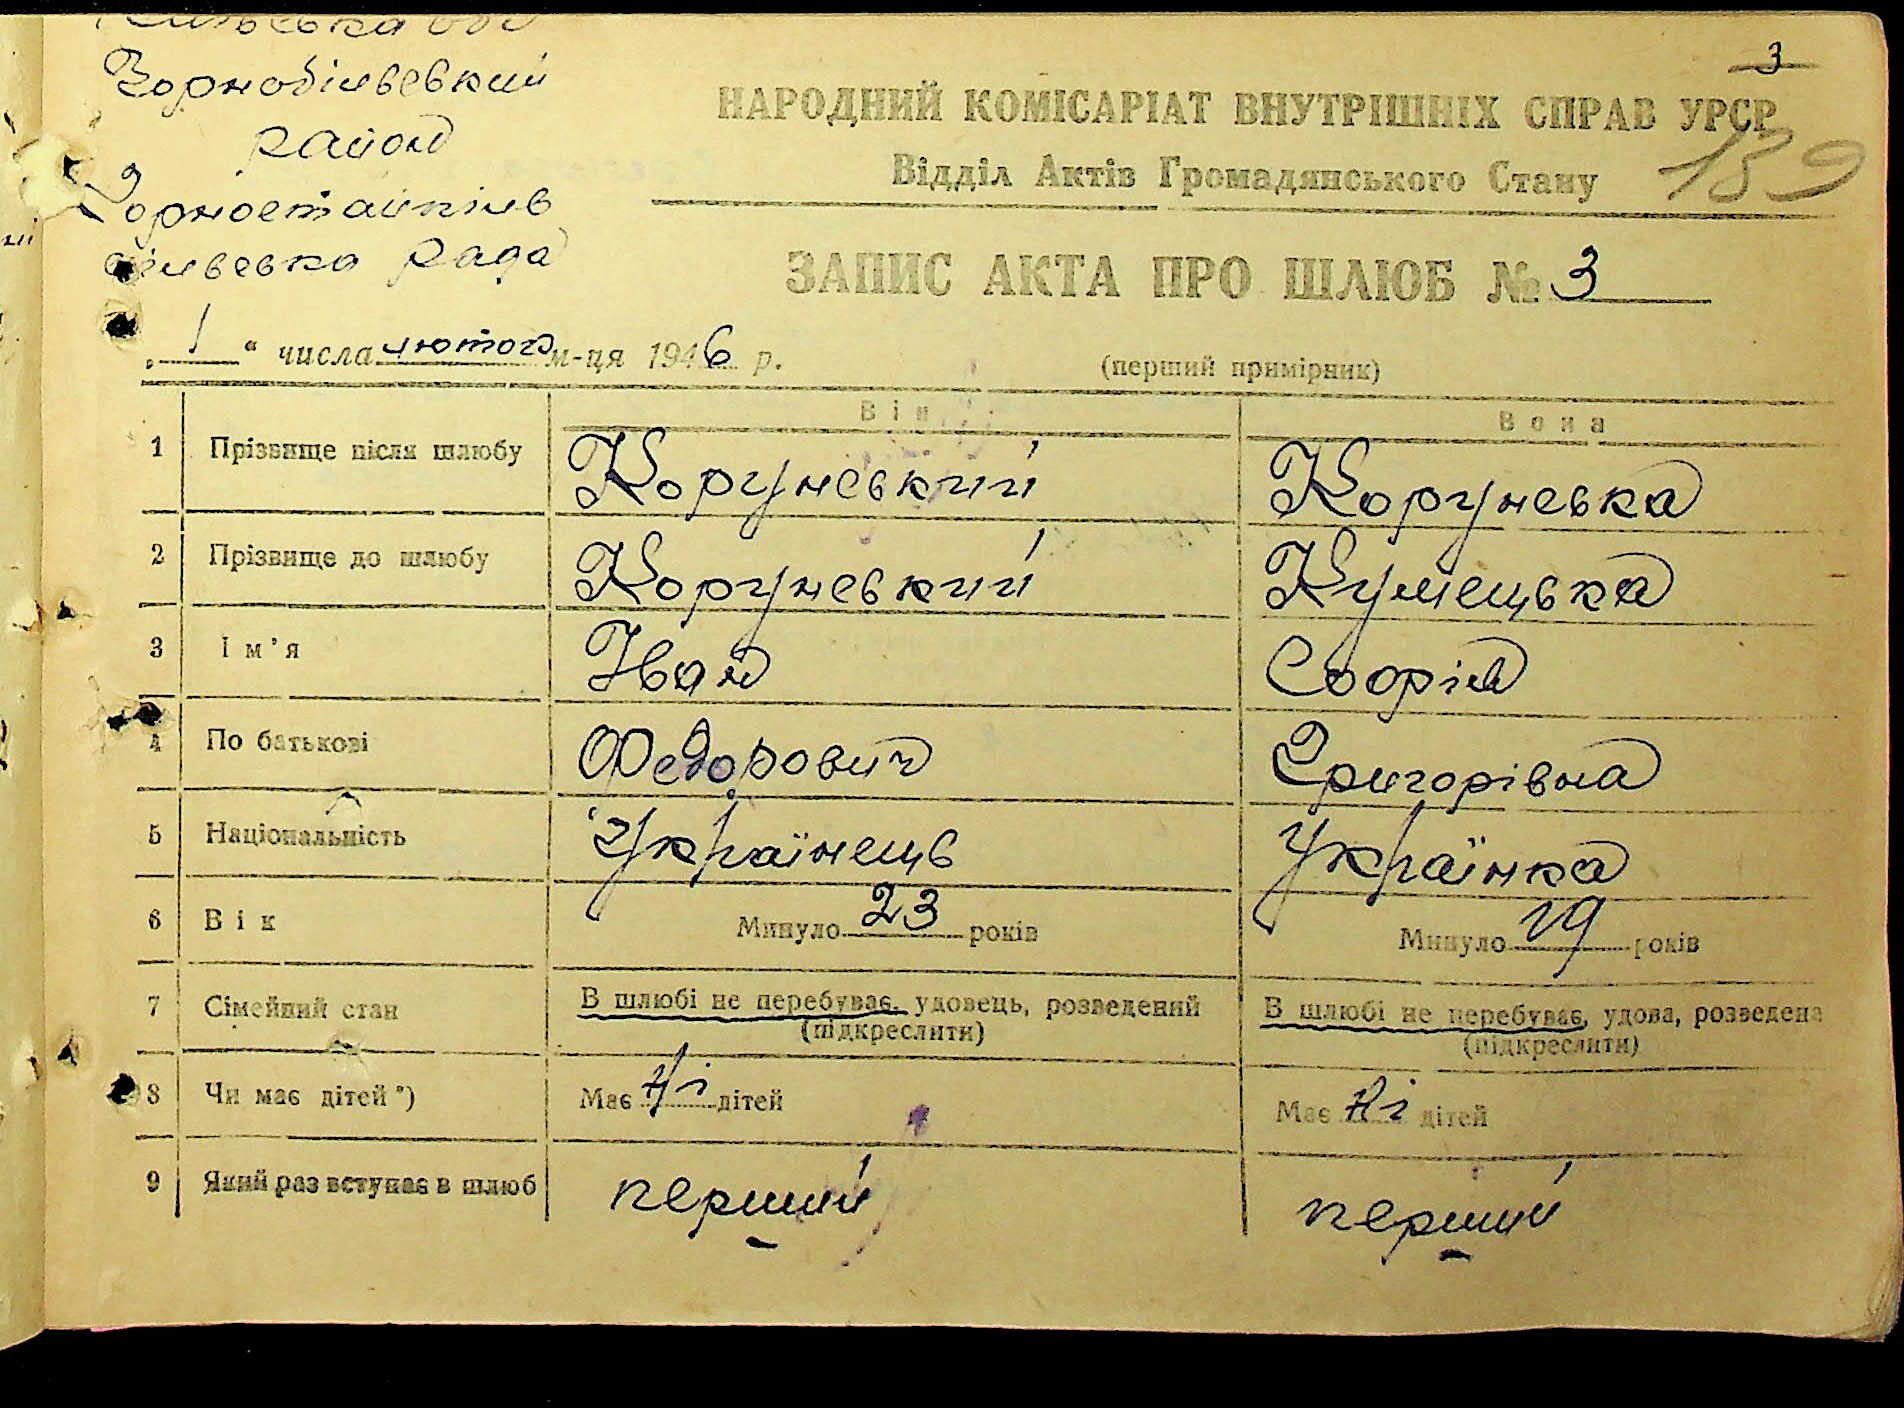 Київська обл
Чорнобільвський
район
Горностайпільв
сільвська рада
3
НАРОДНИЙ КОМІСАРІАТ ВНУТРІШНІХ СПРАВ УРСР
139
Відділ Актів Громадянського Стану
ЗАПИС АКТА ПРО ШЛЮБ № 3
„ 1 “ числа лютого м-ця 1946 р.
(перший примірник)
Він Вона
1 Прізвище після шлюбу Коруневький Коруневька
2 Прізвище до шлюбу Коруневький Кумецька
3 Ім'я Іван Софія
4 По батькові Федорович Григорівна
5 Національність Українець Українка
6 Вік Минуло 23 років Минуло 19 років
7 Сімейний стан В шлюбі не перебуває, удовець, розведений В шлюбі не перебуває, удова, розведена
(підкреслити) (підкреслити)
8 Чи має дітей*) Має Ні дітей Має Ні дітей
9 Який раз вступає в шлюб перший перший